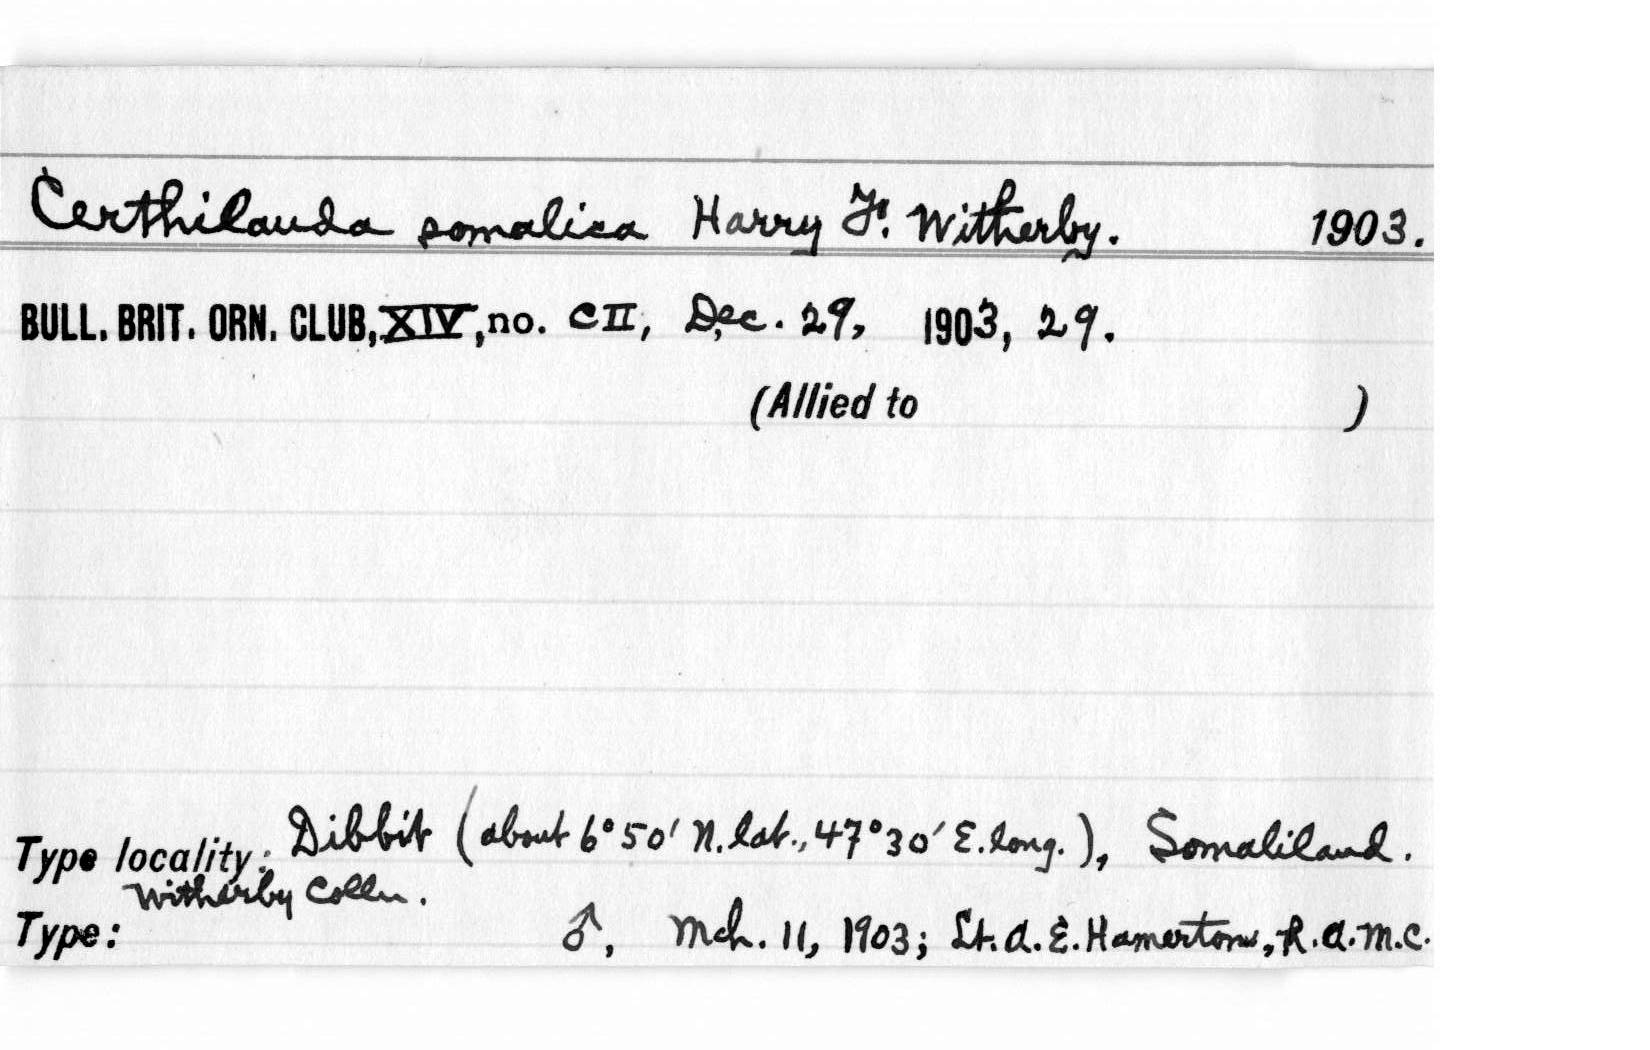 Certhilauda somalica Harry F. Witherby. 1903.
BULL. BRIT. ORN. CLUB, XIV, no. CII, Dec. 29, 1903, 29.
(Allied to )
Type locality: Dibbit (about 6°50' N. lat., 47°30' E. long.), Somaliland.
Witherby Colln.
Type: ♂, Mch. 11, 1903; Lt. A. E. Hamerton, R.A.M.C.